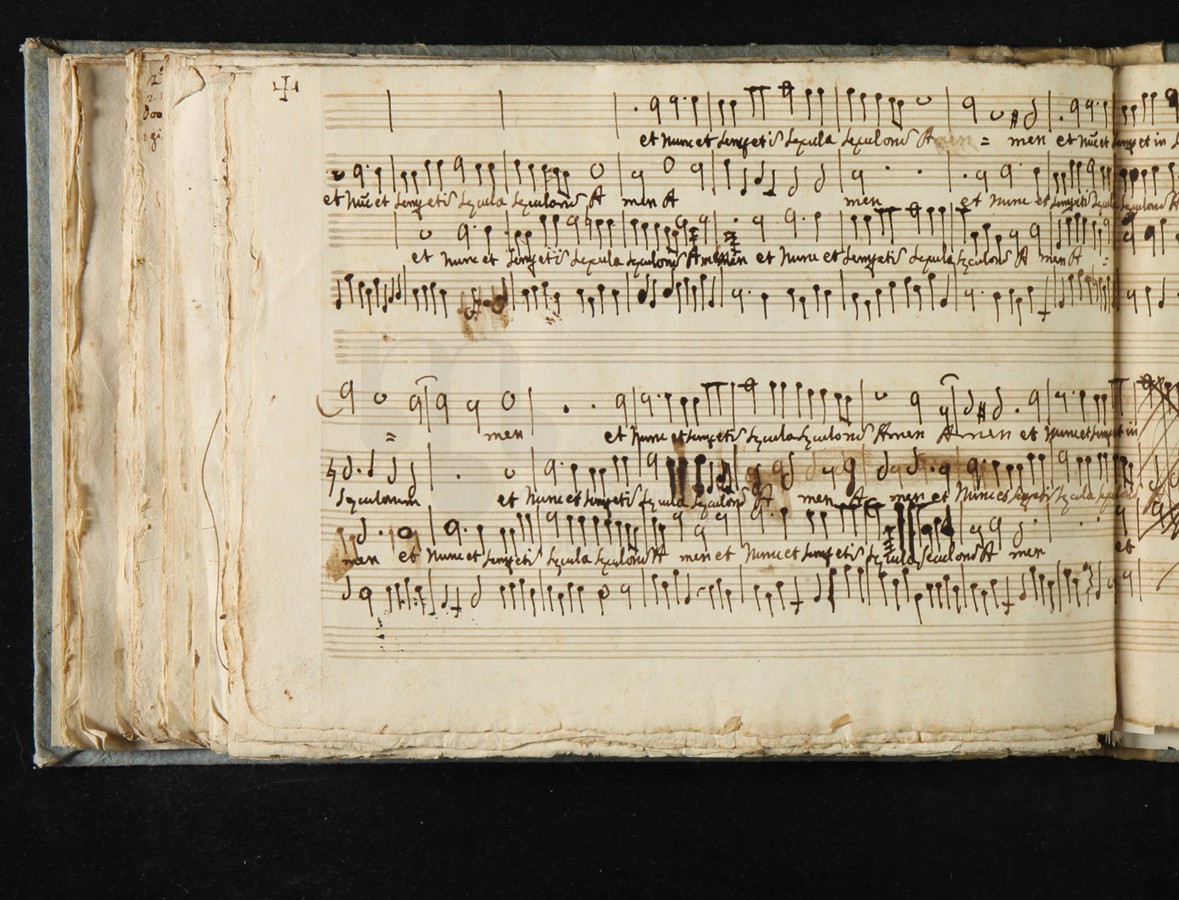 et Nunc et semp et iS Secula seculorus Amen = men et Nuc et semp et in
et Nuc et semp et iS Secula seculorus A men A men et Nunc et semp et iS Secula seculorus A
et Nunc et semp et iS Secula seculorus Amen et Nunc et semp et iS Secula seculorus A men A
= men et Nunc et semp et iS Secula seculorus Amen Amen et Nunc et semp et in
Seculorum et Nunc et semp et iS Secula seculorus A men A men et Nunc et semp et iS Secula seculorus
men et Nunc et semp et iS Secula seculorus A men et Nunc et semp et iS Secula seculorus A men et